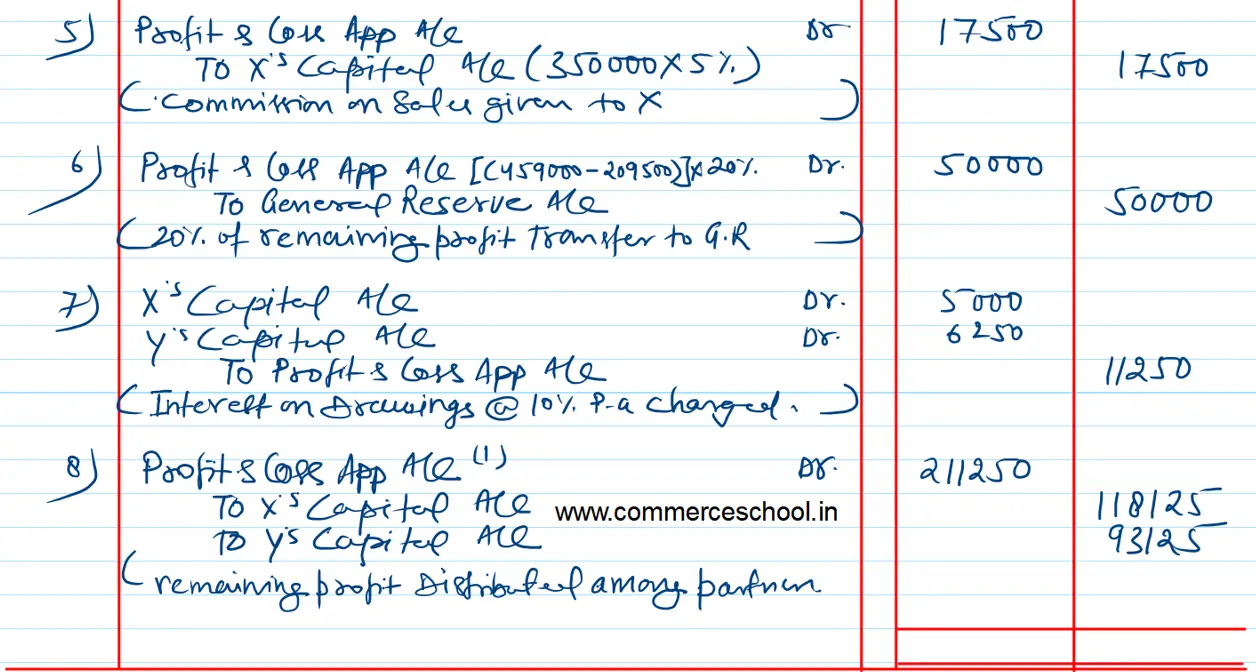 5) Profit & Loss App A/c Dr 17500
To X's Capital A/c (350000X5%) 17500
(Commission on Sales given to X)
6) Profit & Loss App A/c [(459000-209500)]X20% Dr. 50000
To General Reserve A/c 50000
(20% of remaining profit transfer to G.R)
7) X's Capital A/c Dr. 5000
Y's Capital A/c Dr. 6250
To Profit & Loss App A/c 11250
(Interest on Drawings @ 10% P.a charged.)
8) Profit & Loss App A/c (1) Dr. 211250
To X's Capital A/c www.commerceschool.in 118125
To Y's Capital A/c 93125
(remaining profit Distributed among partner